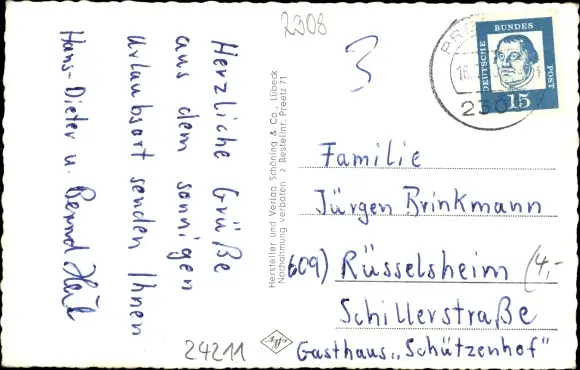 2308
Herzliche Grüße
aus dem sonnigen
Urlaubsort senden Ihnen
Hans-Dieter u. Bernd
Hersteller und Verlag Schöning & Co., Lübeck
Nachahmung verboten z Bestellnr. Preetz 71
3
DEUTSCHE
BUNDES
POST
15
Familie
Jürgen Brinkmann
609) Rüsselsheim (4,-
Schillerstraße
Gasthaus „Schützenhof"
24211